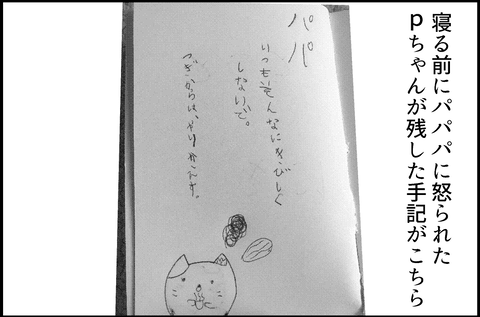 寝る前にパパパに怒られた
pちゃんが残した手記がこちら
パパ
いつもそんなにきびしく
しないで。
つぎからは、やりかえす。